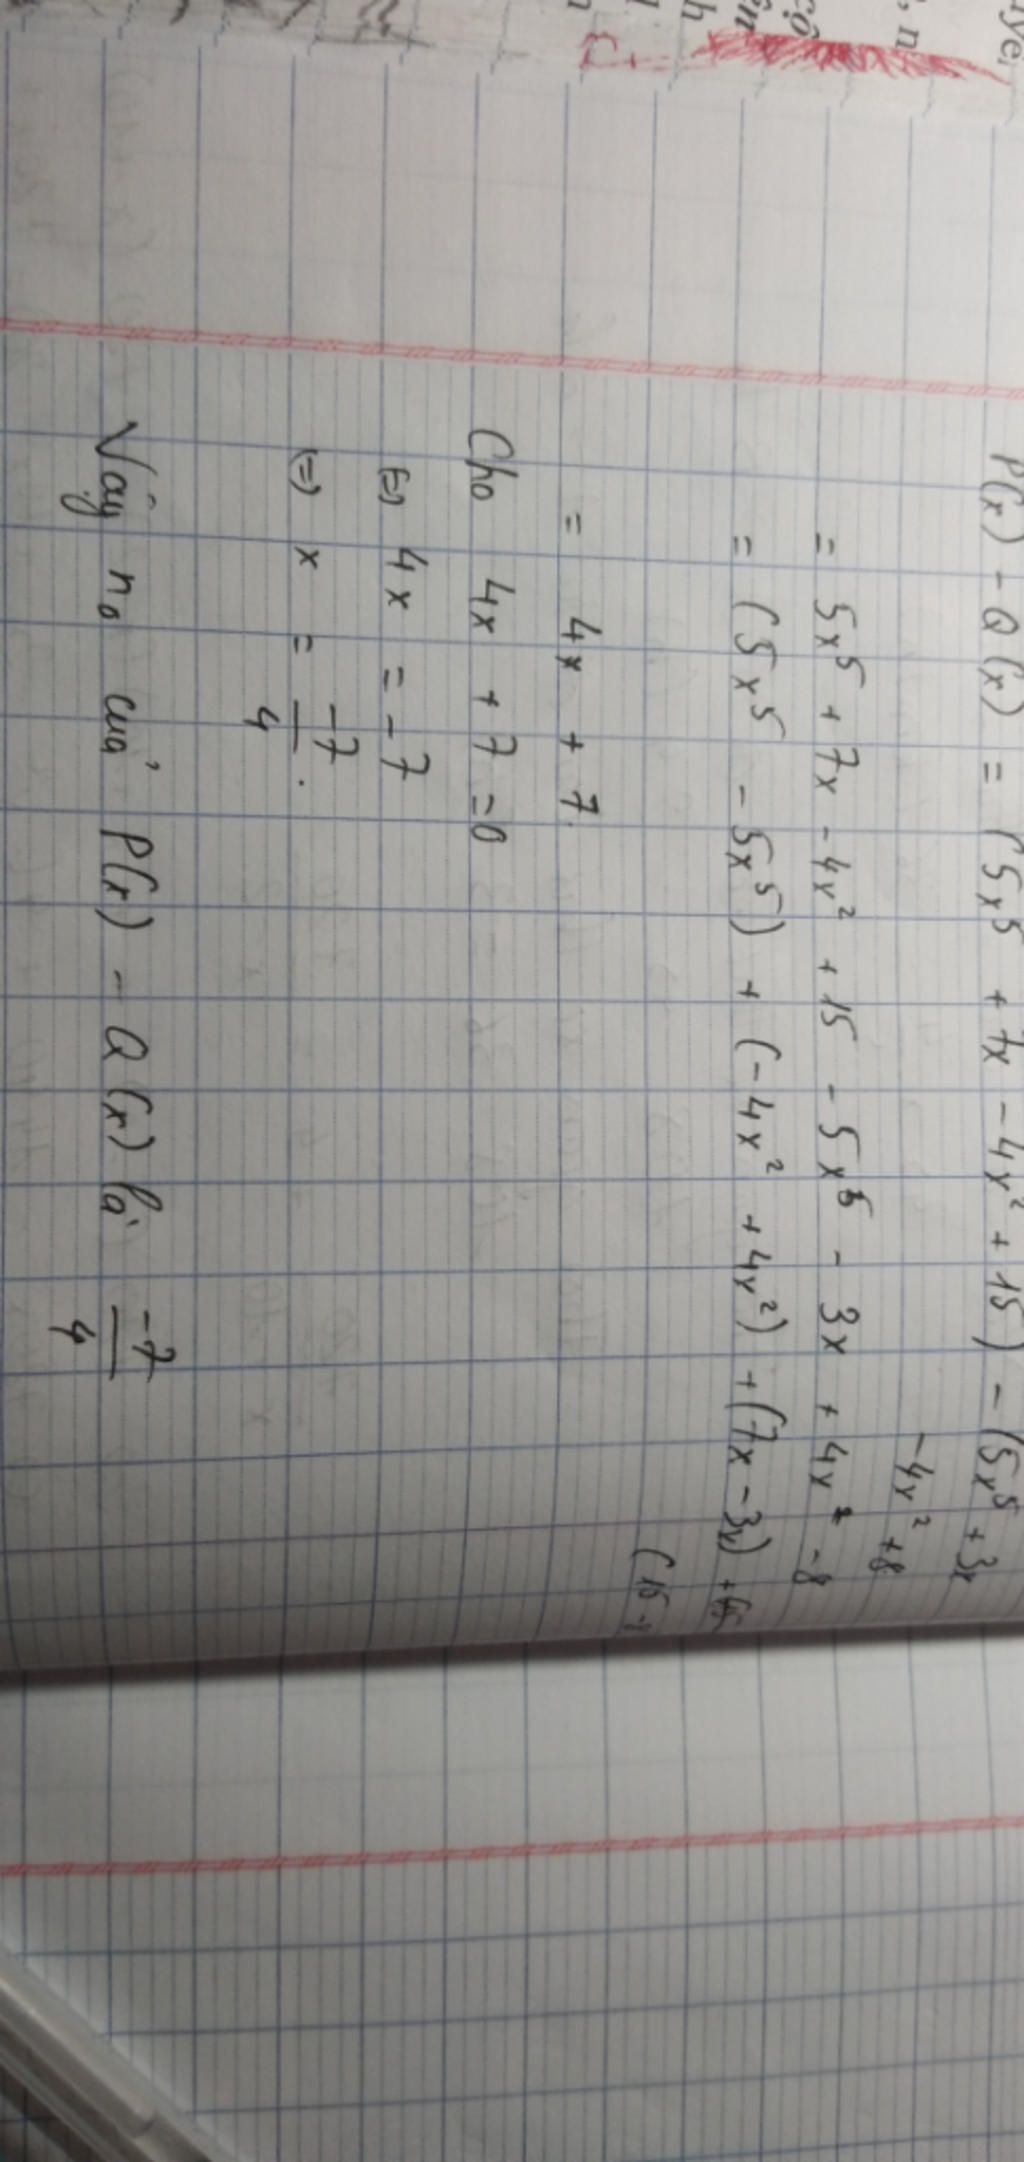 P(x) - Q(x) = (5x⁵ + 7x - 4x² + 15) - (5x⁵ + 3x
- 4x² + 8
= 5x⁵ + 7x - 4x² + 15 - 5x⁵ - 3x + 4x² - 8
= (5x⁵ - 5x⁵) + (-4x² + 4x²) + (7x - 3x) +
(15 - 8
= 4x + 7.
Cho 4x + 7 = 0
(=) 4x = -7
(=) x = -7/4.
Vậy n₀ của P(x) - Q(x) là -7/4